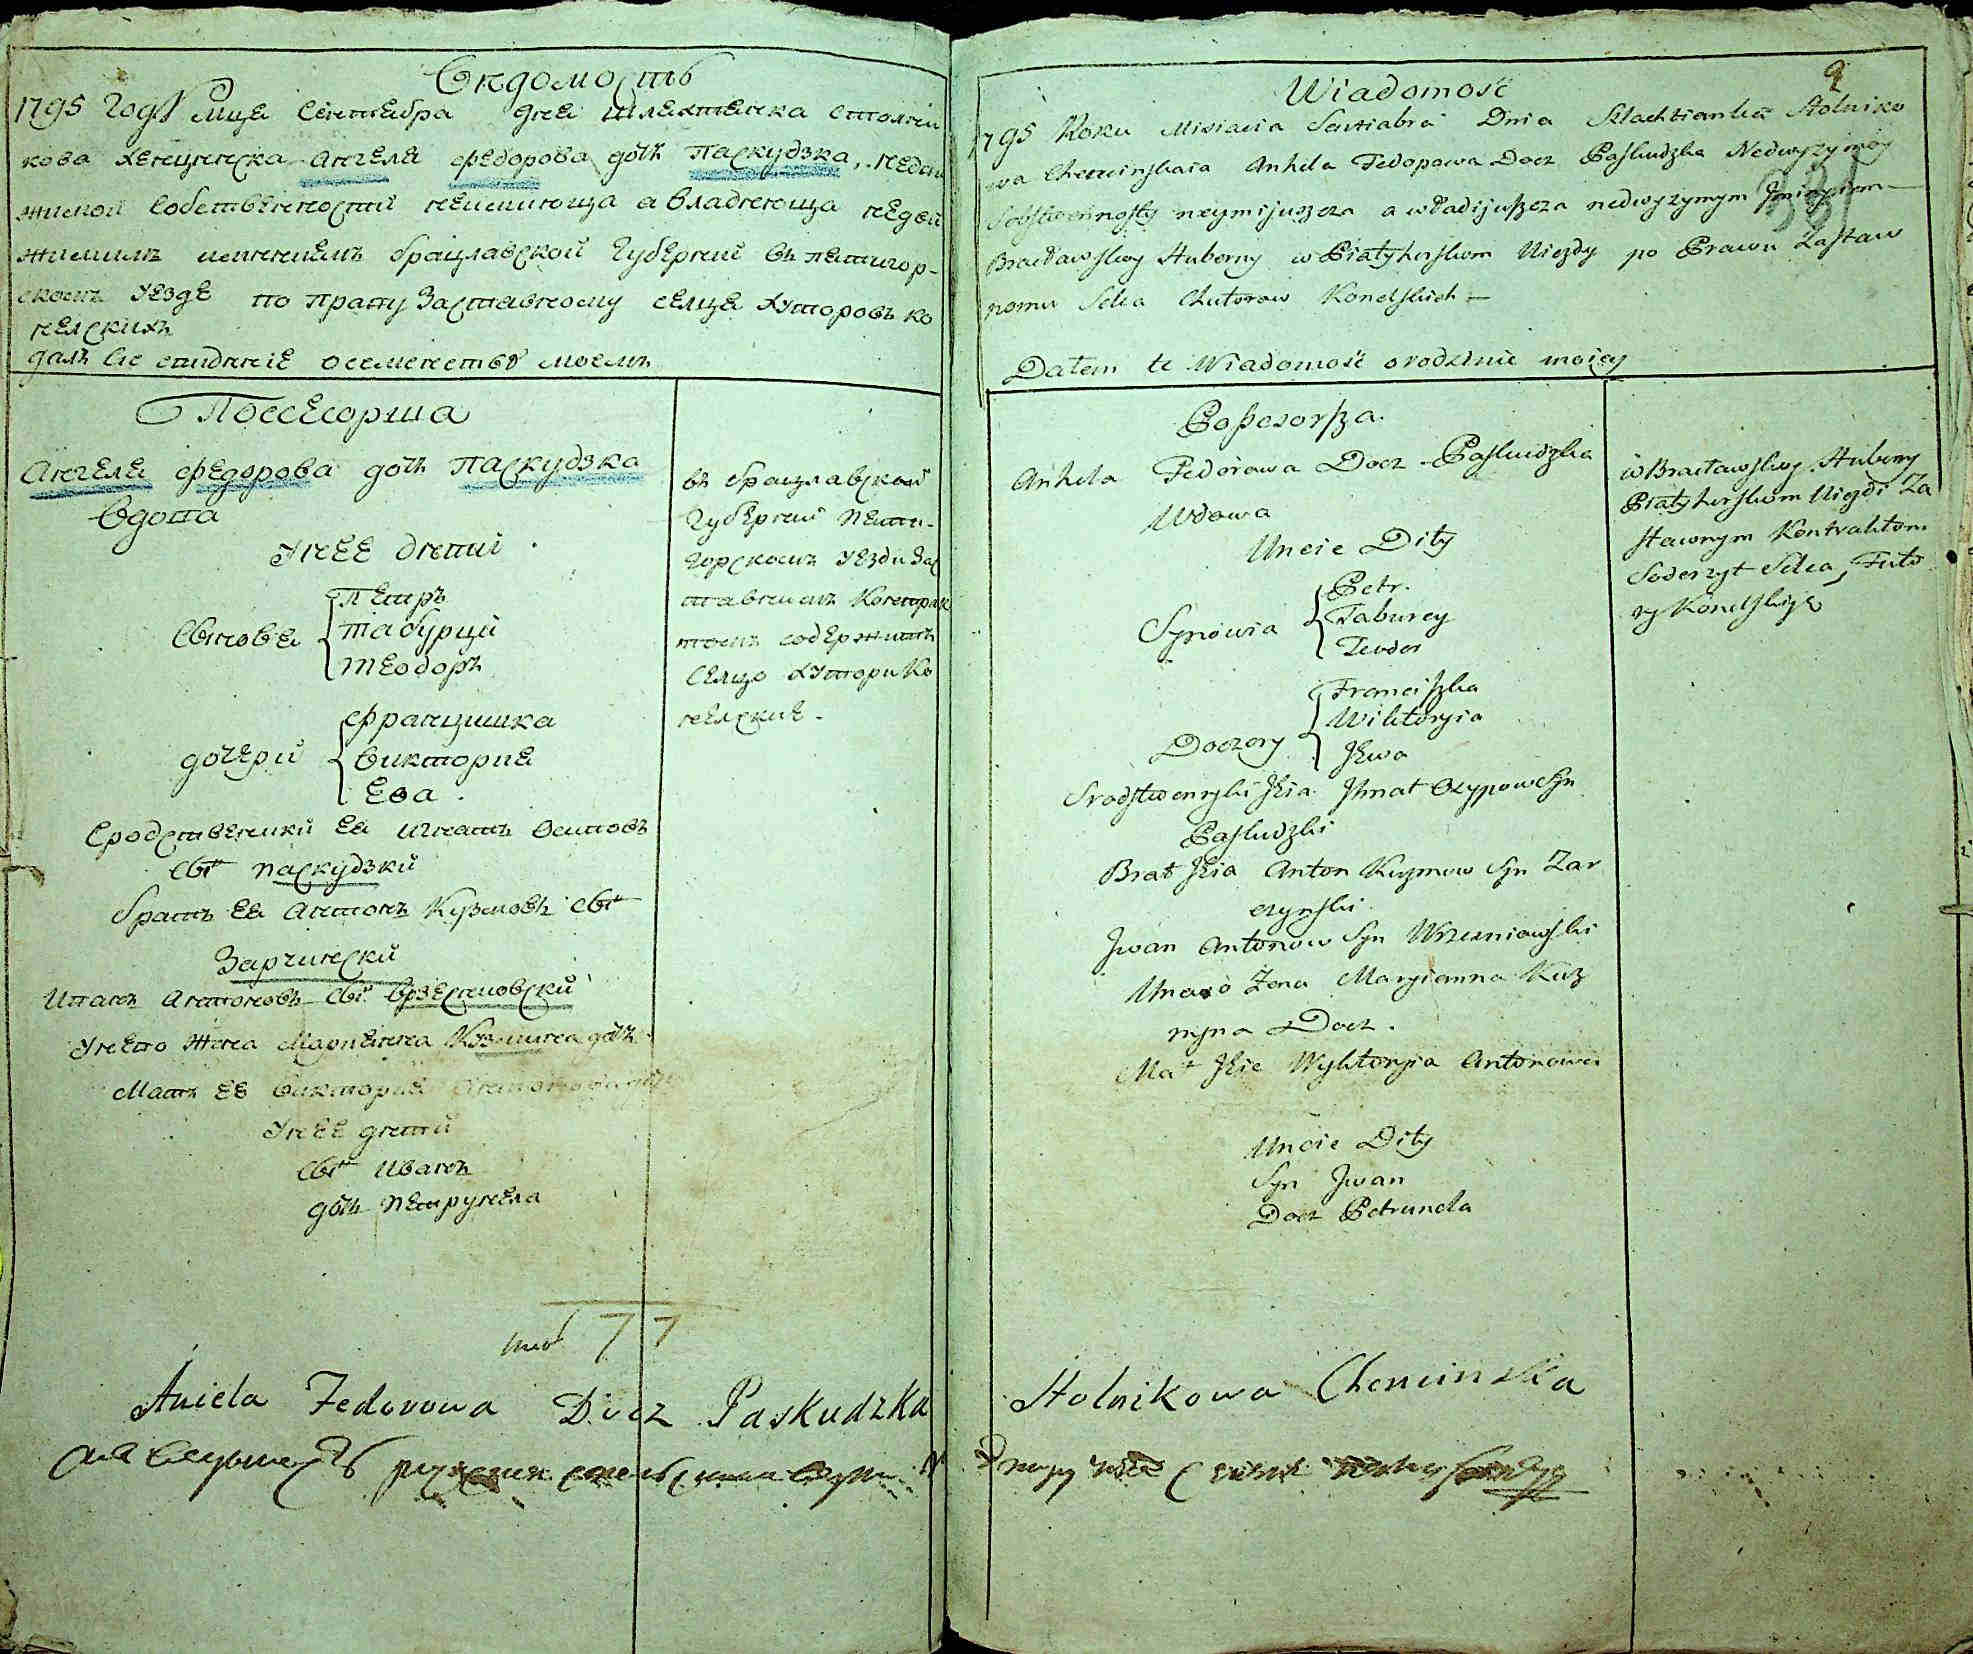 Ведомость
1795 Году мца Сентебра дня шляхтенка столни
кова Хенцинска Ангеля Федорова дочъ Паскудзка, недви
жимой собственности неимиюща а владнеюща недви
жимимъ имениемъ Брацлавской Губернии въ Петигор-
скомъ уезде по праву заставному селца Хуторовъ Ко
нелскихъ
далъ сие видние о семенстве моемъ
Поссесорша
Ангеля Федорова дочъ Паскудзка
вдова
У нее дити
Синове
Петръ
Табурций
Теодоръ
дочери
Францишка
Викторие
Ева
Сродственики ее Игнатъ Осиповъ
снъ Паскудзки
братъ ее Антонъ Кузмовъ снъ
Зарчински
Иванъ Антоновъ снъ Врзесниовский
У него жена Мариенна Кузмина дочъ
Матъ ее Викторие Антонова дочъ
У нее дити
снъ Иванъ
дочъ Петрунела
въ Брацлавской
Губернии Пети-
горскомъ уезди зас
тавнимъ контрак
томъ содержитъ
селцо Хутори Ко
нелские
77
Aniela Fedorowa Docz Paskudzka
Wiadomość
9
1795 Roku Misiacia Sentiabra Dnia Szlachtianka Stolniko
wa Chencinskaia Anhela Fedopowa Docz Paskudzka Nedwyzymoy
Sobstwennosty neymijuszcza a władijuszcza nedwyzymym Jmieniem
331
Bracławskoy Huberny w Piatyhorskom Uiezdy po Prawu Zastaw
nomu Selca Chutorow Konelskich
Datem te Wiadomość o rodzinie moiey
Possesorsza.
Anhela Fedorowa Docz Paskudzka
Wdowa
Uneie Dity
Synowia
Petr.
Taburcy
Teodor
Doczery
Franciszka
Wiktoryia
Jewa
Srodstwennyki Jeia Jhnat Ozypow Syn
Paskudzki
Brat Jeia Anton Kuzmow Syn Zar
czynski
Jwan Antonow Syn Wrzesniowski
Uneho Zona Maryianna Kuz
myna Docz.
Mat Jeie Wyktoryia Antonowa
Uneie Dity
Syn Jwan
Docz Petrunela
w Bracławskoy Huberny
Piatyhorskom Uiezdi Za
stawnym Kontraktom
Soderzyt Selca, Futo
ry Konelskije
Stolnikowa Chencinska